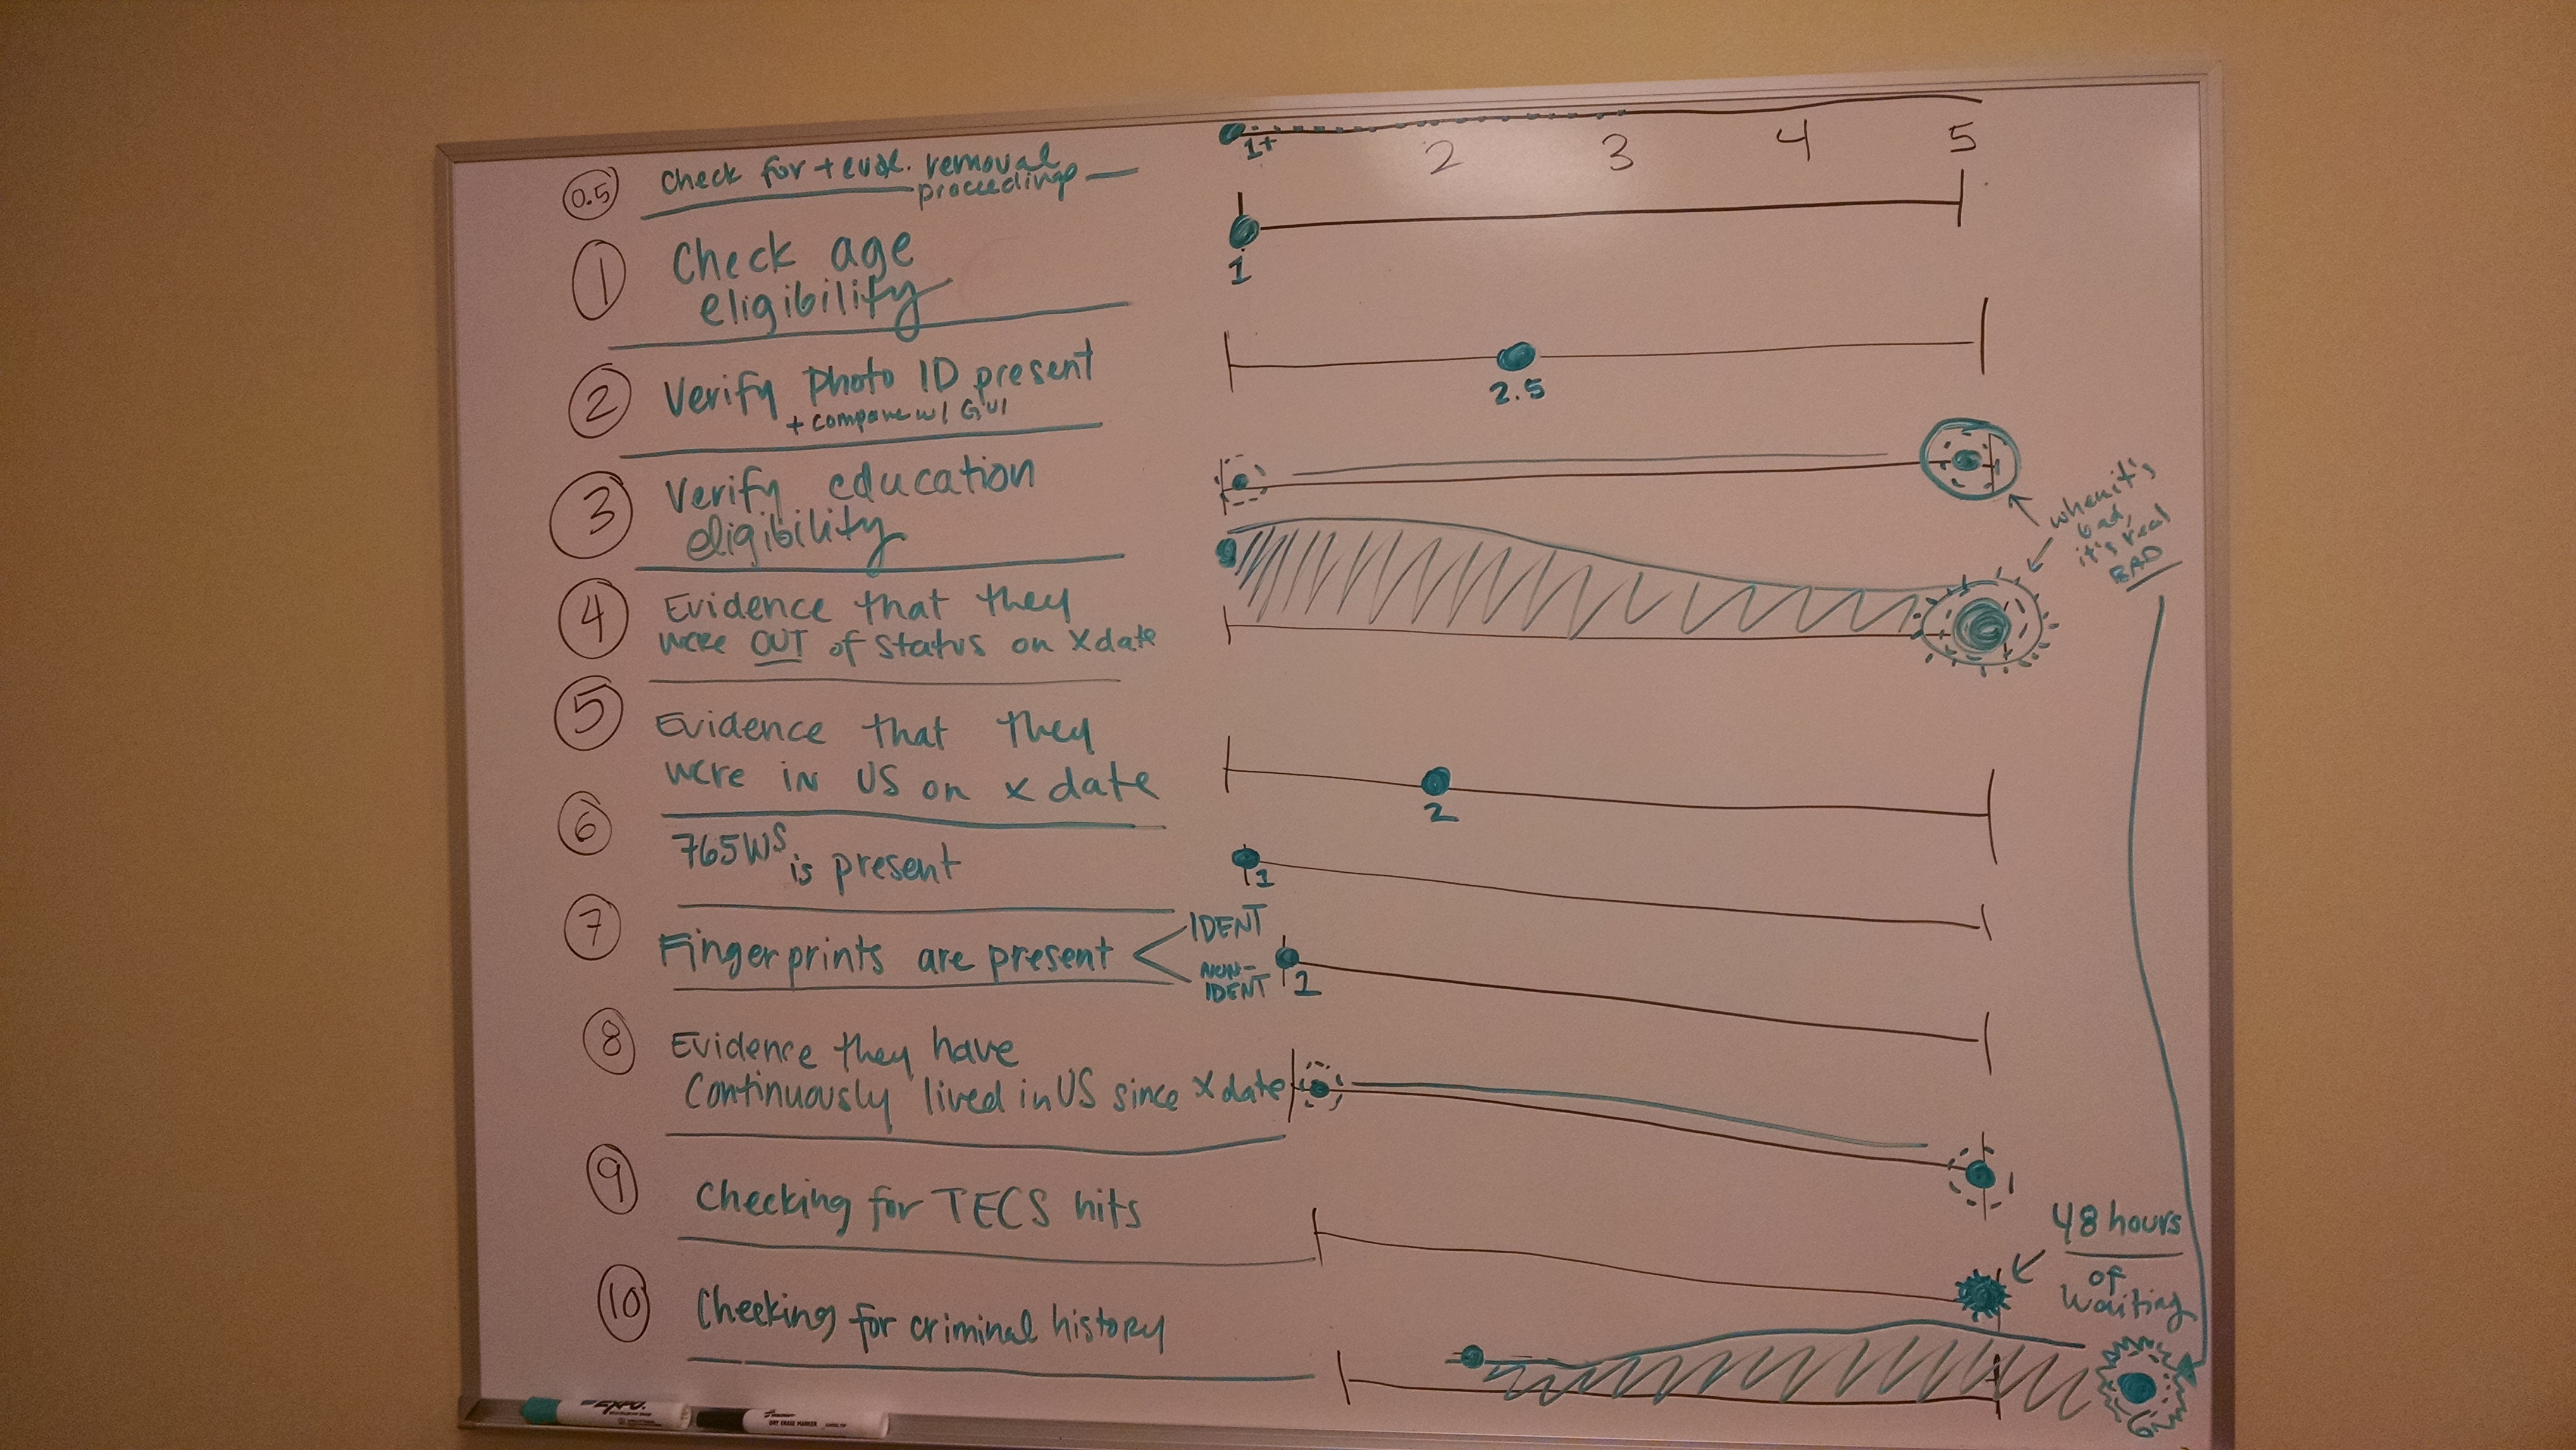 0.5 Check for + evid. removal
proceedings
1+ 2 3 4 5
1 Check age
eligibility
1
2 Verify Photo ID present
+ compare w/ GUI
2.5
3 Verify education
eligibility
when it's
bad,
it's real
BAD
4 Evidence that they
were OUT of status on X date
5 Evidence that they
were IN US on x date
2
6 765WS
is present
1
7 Fingerprints are present
IDENT
NON-
IDENT
1
8 Evidence they have
Continuously lived in US since X date
9 Checking for TECS hits
48 hours
of
waiting
10 Checking for criminal history
6
EXPO
DRY ERASE MARKER